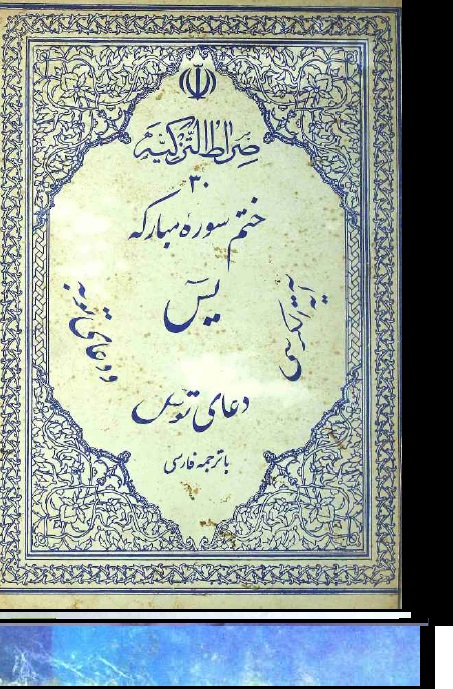 صراط التزکیه
۳۰
ختم سوره مبارکه
یسَ
آیة الکرسی
و دعای توبه
دعای توسل
با ترجمه فارسی